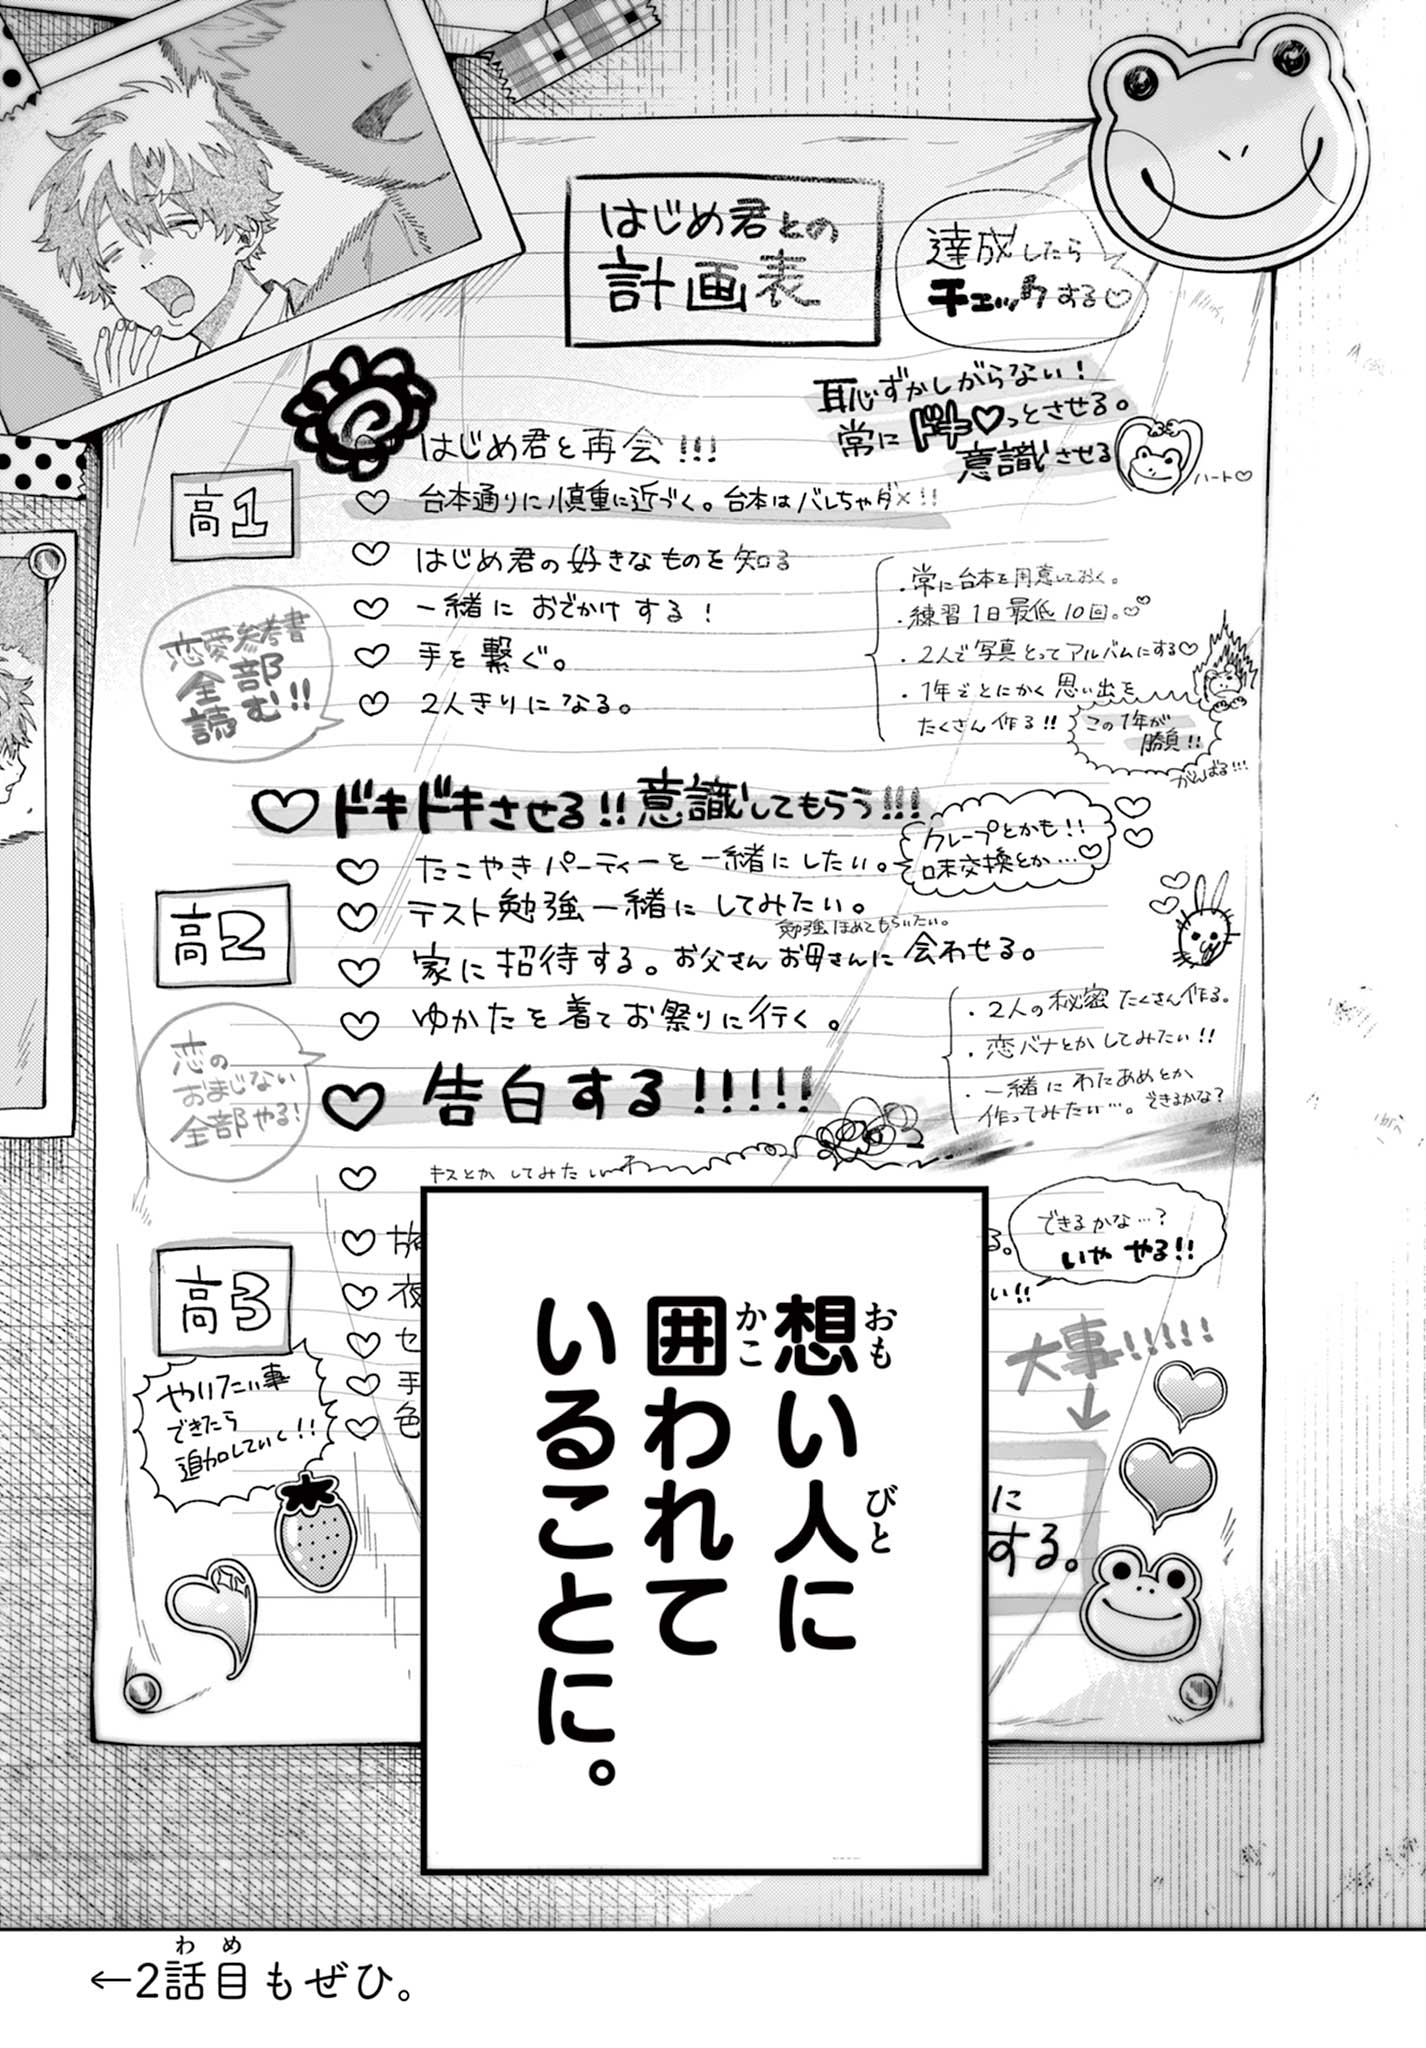 はじめ君との
計画表
達成したら
チェックする♡
恥ずかしがらない!
常にドキ♡っとさせる。
意識させる
ハート♡
はじめ君と再会!!!
高1
♡ 台本通りに慎重に近づく。台本はバレちゃダメ!!
♡ はじめ君の好きなものを知る
♡ 一緒におでかけする!
♡ 手を繋ぐ。
♡ 2人きりになる。
・常に台本を用意しておく。
・練習1日最低10回。♡♡
・2人で写真とってアルバムにする♡
・1年でとにかく思い出を
たくさん作る!!
この1年が
勝負!!
がんばる!!!
恋愛参考書
全部
読む!!
♡ドキドキさせる!!意識してもらう!!!
♡ たこやきパーティーを一緒にしたい。
クレープとかも!!
味交換とか…♡
高2
♡ テスト勉強一緒にしてみたい。
勉強ほめてもらいたい。
♡ 家に招待する。お父さんお母さんに会わせる。
♡ ゆかたを着てお祭りに行く。
・2人の秘密たくさん作る。
・恋バナとかしてみたい!!
・一緒にわたあめとか
作ってみたい…。できるかな?
恋の
おまじない
全部やる!
♡ 告白する!!!!!
♡ キスとかしてみたい
できるかな…?
いややる!!
高3
♡
♡ 夜
♡ セ
♡ 手
♡ 色
る。
い!!
大事!!!!!
↓
に
する。
やりたい事
できたら
追加していく!!
想い人に
囲われて
いることに。
おも
びと
かこ
←2話目もぜひ。
わ め